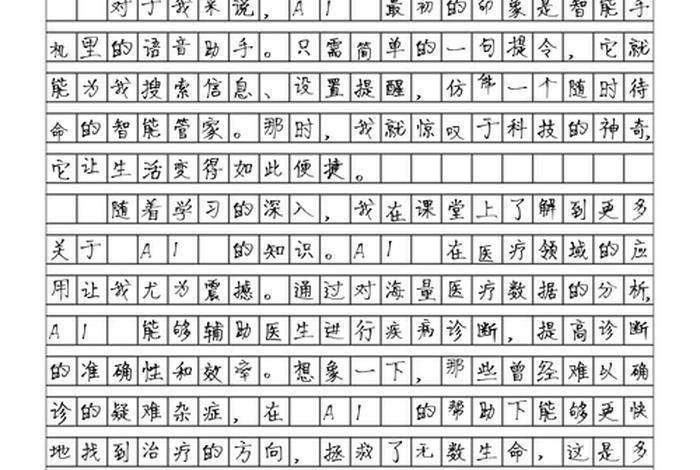 对于我来说，AI 最初的印象是智能手
机里的语音助手。只需简单的一句提令，它就
能为我搜索信息、设置提醒，仿佛一个随时待
命的智能管家。那时，我就惊叹于科技的神奇，
它让生活变得如此便捷。
随着学习的深入，我在课堂上了解到更多
关于 AI 的知识。AI 在医疗领域的应
用让我尤为震撼。通过对海量医疗数据的分析，
AI 能够辅助医生进行疾病诊断，提高诊断
的准确性和效率。想象一下，那些曾经难以确
诊的疑难杂症，在 AI 的帮助下能够更快
地找到治疗的方向，拯救了无数生命，这是多